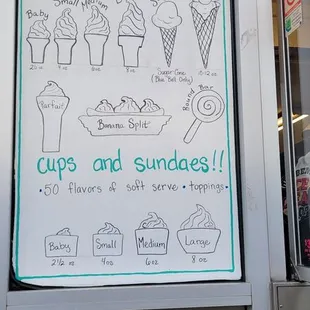 Baby Small Medium
2½ oz 4 oz 6 oz 8 oz
Sugar Cone
(Blue Bell Only)
8-12 oz
Parfait
Banana Split
Round Bar
cups and sundaes!!
• 50 flavors of soft serve • toppings •
Baby Small Medium Large
2½ oz 4 oz 6 oz 8 oz